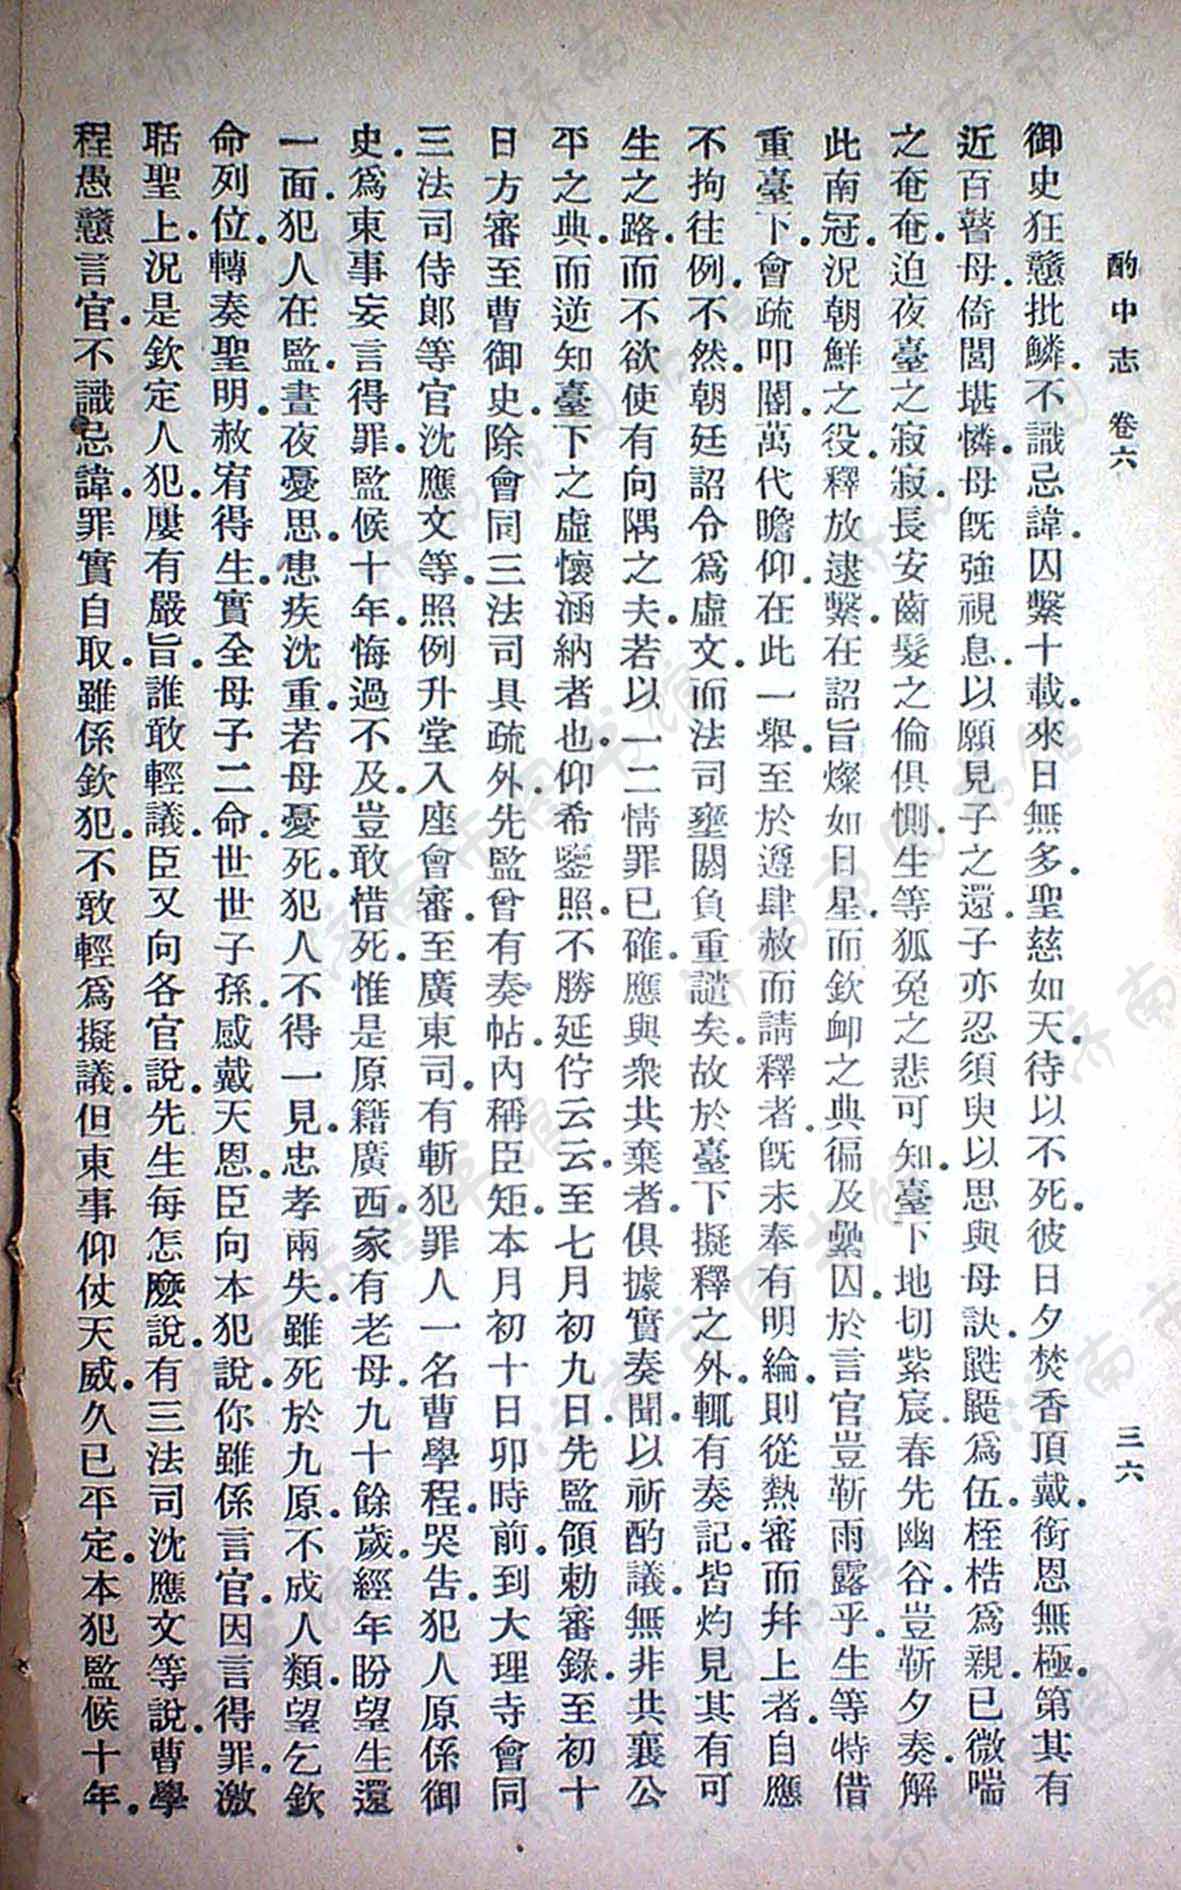 酌中志 卷六 三六
御史狂戇批鱗。不識忌諱。囚繫十載。來日無多。聖慈如天。待以不死。彼日夕焚香頂戴。銜恩無極。第其有
近百瞽母。倚閭堪憐。母旣強視息。以願見子之還。子亦忍須臾以思與母訣。鼪鼯爲伍。桎梏爲親。已微喘
之奄奄。迫夜臺之寂寂。長安齒髮之倫俱惻。生等狐兔之悲可知。臺下地切紫宸。春先幽谷。豈靳夕奏。解
此南冠。況朝鮮之役。釋放逮繫。在詔旨燦如日星。而欽卹之典。徧及纍囚。於言官豈靳雨露乎。生等特借
重臺下。會疏叩閽。萬代瞻仰。在此一舉。至於遵肆赦而請釋者。旣未奉有明綸。則從熱審而幷上者。自應
不拘往例。不然。朝廷詔令爲虛文。而法司壅閼負重譴矣。故於臺下擬釋之外。輒有奏記。皆灼見其有可
生之路。而不欲使有向隅之夫。若以一二情罪已確。應與衆共棄者。俱據實奏聞。以祈酌議。無非共襄公
平之典。而逆知臺下之虛懷涵納者也。仰希鑒照。不勝延佇云云。至七月初九日。先監領勅審錄。至初十
日方審至曹御史。除會同三法司具疏外。先監曾有奏帖。內稱臣矩。本月初十日卯時前。到大理寺會同
三法司侍郎等官沈應文等。照例升堂入座會審。至廣東司。有斬犯罪人一名曹學程。哭告。犯人原係御
史。爲東事妄言得罪。監候十年。悔過不及。豈敢惜死。惟是原籍廣西。家有老母。九十餘歲。經年盼望生還
一面。犯人在監。晝夜憂思。患疾沈重。若母憂死。犯人不得一見。忠孝兩失。雖死於九原。不成人類。望乞欽
命列位。轉奏聖明。赦宥得生。實全母子二命。世世子孫。感戴天恩。臣向本犯說。你雖係言官。因言得罪。激
聒聖上。況是欽定人犯。屢有嚴旨。誰敢輕議。臣又向各官說。先生每怎麼說。有三法司沈應文等說。曹學
程愚戇言官。不識忌諱。罪實自取。雖係欽犯。不敢輕爲擬議。但東事仰仗天威。久已平定。本犯監候十年。